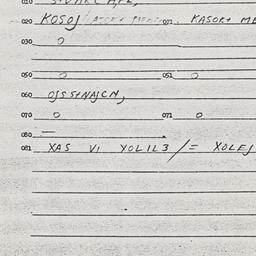 020 KOSOJ 021 KASOR+ ME
030 0
050 0 051 0
060 OJSS+NAJCN,
070 0 071 0
080 —
081 XAS VI YOLIL3 /= XOLEJ